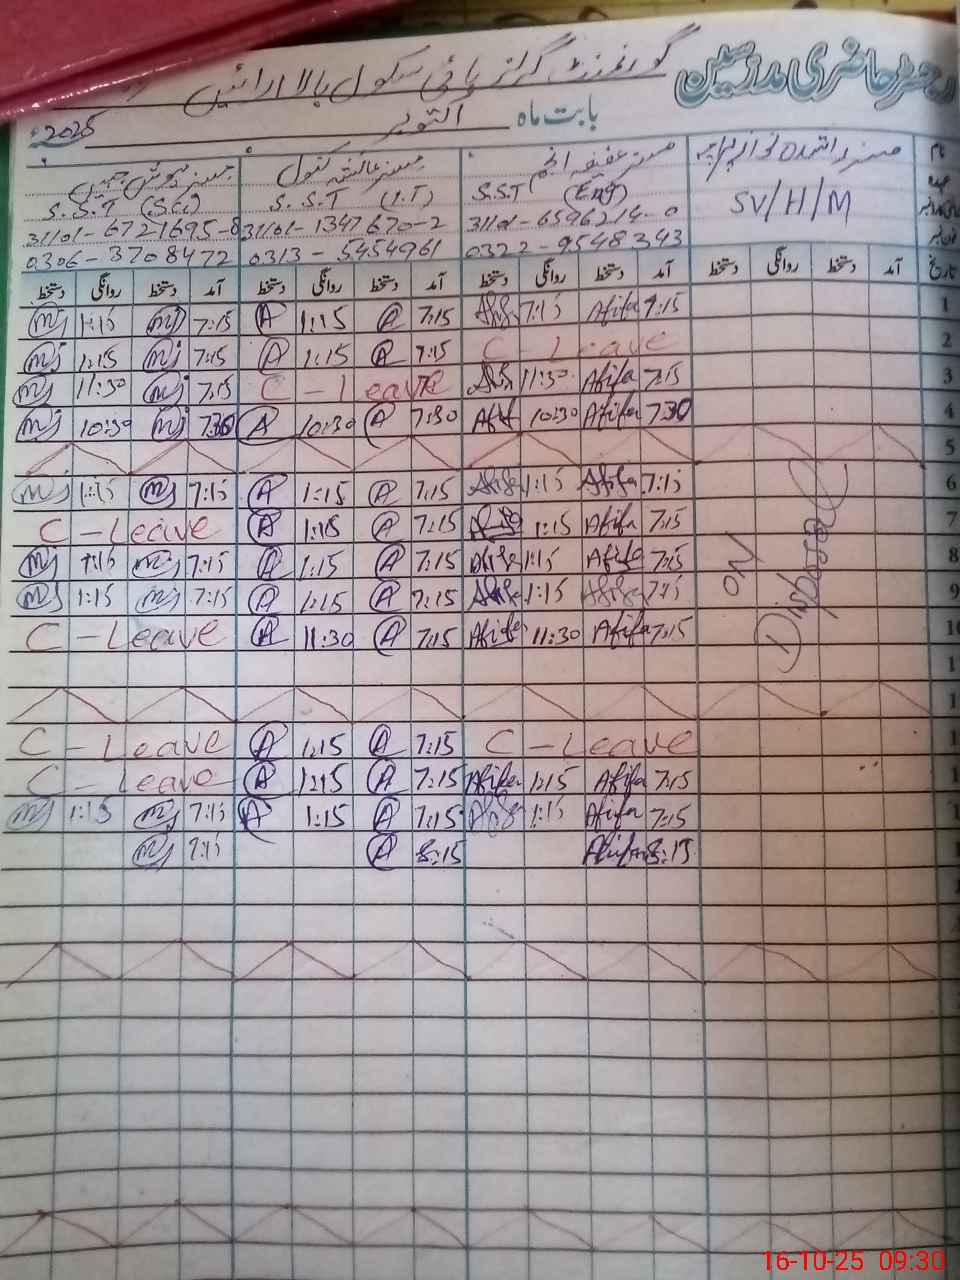 رجسٹر حاضری مدرسین گورنمنٹ گرلز ہائی سکول بالا ارائیں
بابت ماہ اکتوبر 2025ء
نام مسز راشدہ نواز مسز عفیفہ انجم مسز عائشہ کنول مسز
عہدہ SV/H/M S.S.T (Eng) S.S.T (I.T) S.S.T (Sci)
31101-6596214-0 31101-1347670-2 31101-6721695-8
0322-9548343 0313-5454961 0306-3708472
تاریخ آمد دستخط روانگی دستخط آمد دستخط روانگی دستخط آمد دستخط روانگی دستخط آمد دستخط روانگی دستخط
mj 1:15 mj 7:15 A 1:15 A 7:15 Afifa 7:15 Afifa 7:15 1
mj 1:15 mj 7:15 A 1:15 A 7:15 C - Leave 2
mj 11:30 mj 7:15 C - Leave Afifa 11:30 Afifa 7:15 3
mj 10:30 mj 7:30 A 10:30 A 7:30 Afif 10:30 Afifa 7:30 4
5
mj 1:15 mj 7:15 A 1:15 A 7:15 Afifa 1:15 Afifa 7:15 6
C - Leave A 1:15 A 7:15 Afifa 1:15 Afifa 7:15 7
mj 1:15 mj 7:15 A 1:15 A 7:15 Afifa 1:15 Afifa 7:15 8
mj 1:15 mj 7:15 A 1:15 A 7:15 Afifa 1:15 Afifa 7:15 9
C - Leave A 11:30 A 7:15 Afifa 11:30 Afifa 7:15 10
ON Disposal
C - Leave A 1:15 A 7:15 C - Leave
C - Leave A 1:15 A 7:15 Afifa 1:15 Afifa 7:15
mj 1:15 mj 7:15 A 1:15 A 7:15 Afifa 1:15 Afifa 7:15
mj 7:15 A 8:15 Afifa 8:15
16-10-25 09:30